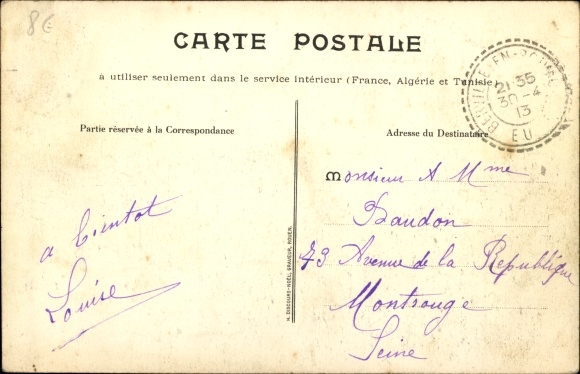 8€
CARTE POSTALE
à utiliser seulement dans le service intérieur (France, Algérie et Tunisie)
Partie réservée à la Correspondance
Adresse du Destinataire
21 35
30 - 4
13
EU
Monsieur A Mme
Baudon
73 Avenue de la République
Montrouge
Seine
a bientot
Louise